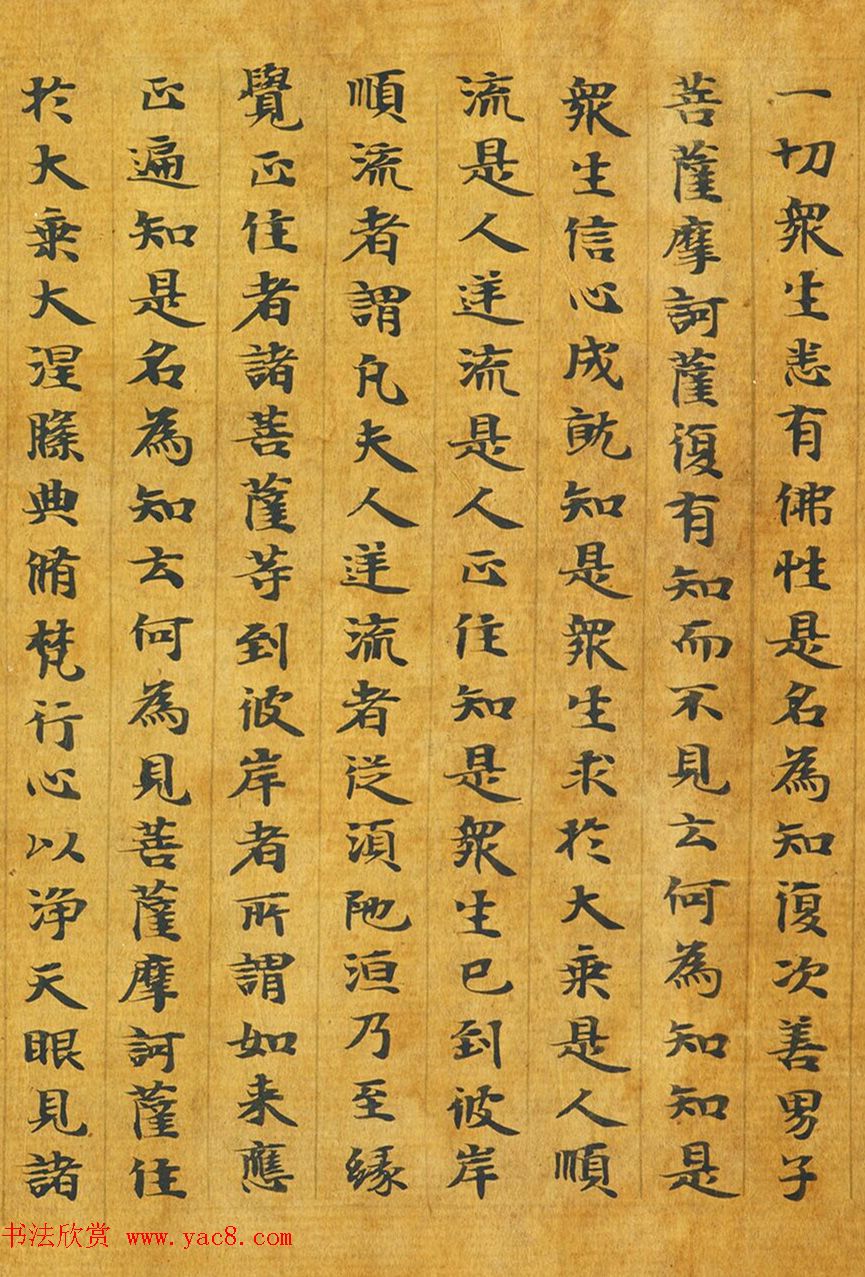 一切衆生悉有佛性是名為知復次善男子
菩薩摩訶薩復有知而不見云何為知知是
衆生信心成就知是衆生求於大乘是人順
流是人逆流是人正住知是衆生已到彼岸
順流者謂凡夫人逆流者從須陁洹乃至緣
覺正住者諸菩薩等到彼岸者所謂如来應
正遍知是名為知云何為見菩薩摩訶薩住
於大乘大涅槃典脩梵行心以浄天眼見諸
书法欣赏 www.yac8.com